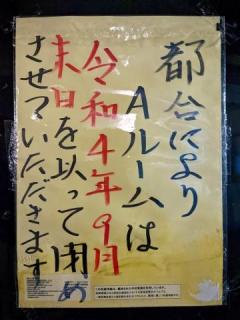 都合により
Aルームは
令和4年9月
末日を以って閉め
させていただきます